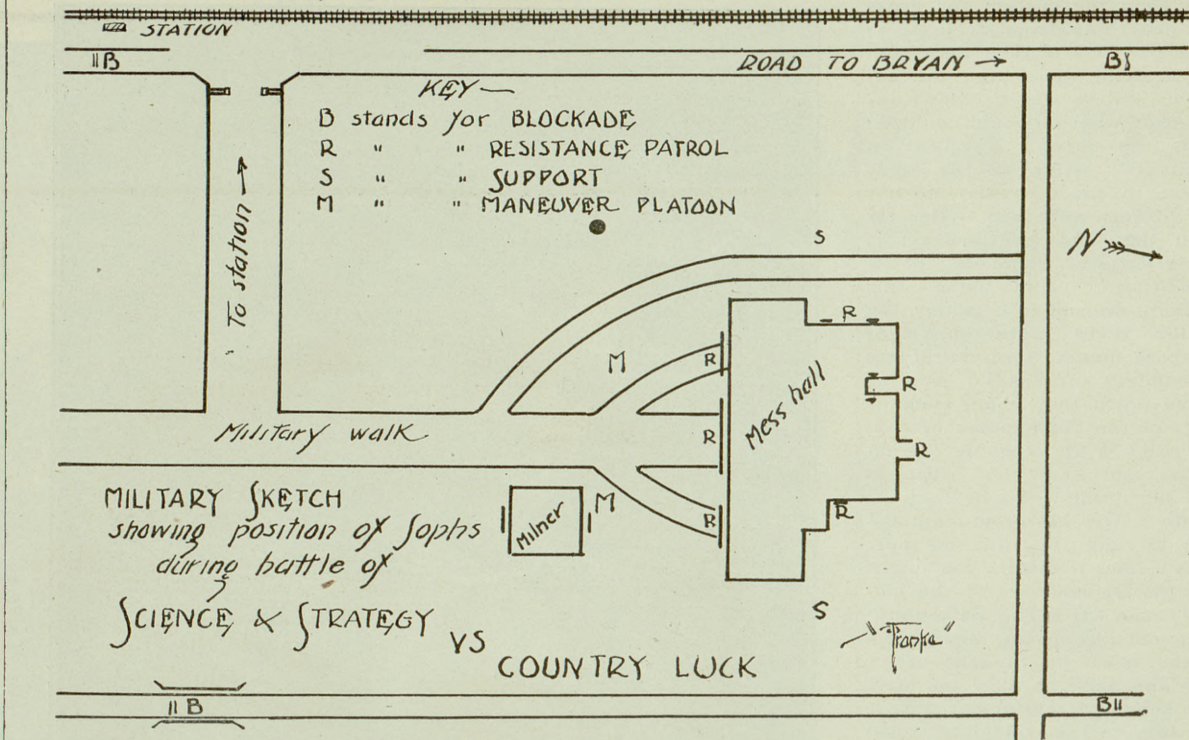 STATION
B
ROAD TO BRYAN
B
KEY—
B stands for BLOCKADE
R " " RESISTANCE PATROL
S " " SUPPORT
M " " MANEUVER PLATOON
To station
N
S
R
M
R
R
Mess hall
R
R
Military walk
MILITARY SKETCH
showing position of Sophs
during battle of
SCIENCE & STRATEGY
VS
COUNTRY LUCK
Milner
M
R
R
S
B
B